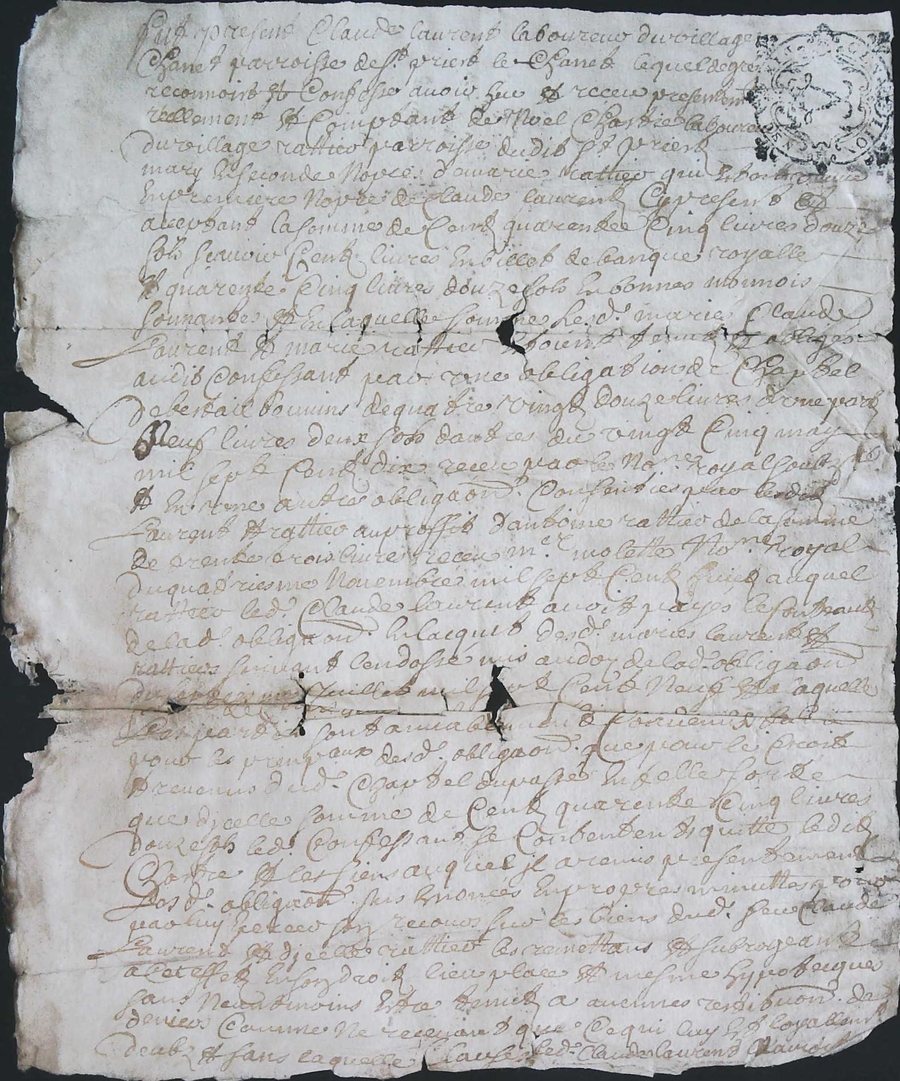 fut present Claude laurent laboureur du village
Chanet parroisse de St priest le Chanet lequel de gre
reconnoist et Confesse avoir heu et receu presentem
reellement et Comptant de Noel Chastre laboureu
du village rattier parroisse dudit St priest
mary en seconde Nopces de marie rattier qui
en premiere Nopce de Claude laurent Cy present et
aceptant la somme de Cent quarente Cinq livres douze
sols scavoir Cent livres en billet de banque royalle
et quarente Cinq livres douze sols en bonnes monnois
sonnantes et en laquelle somme les d. maries Claude
Laurent et marie rattier estoient tenus et obliges
audit Confessant par une obligation de Cheptel
de bestail bouvins de quatre vingt douze livres d'une part
Neuf livres deux sols dautres du vingt Cinq may
mil sept Cent dix receu par le No.re royal soub
et en une autre obligaon. Consenties par lesdits
Laurent et rattier au proffit d'antoine rattier de la somme
de trente trois livres receu m.e molette No.re royal
du quatriesme Novembre mil sept Cent huit auquel
rattier led. Claude laurent avoit payes le Contenu
de lad. obligaon. en lacquit desd. maries laurent et
rattier suivant lendosse mis au doz de lad. obligaon
du juillet mil sept Cent Neuf et a laquelle
Les parties sont amiablement Convenus
pour les principaux desd. obligaon. que pour le Croit
et revenus dud. Cheptel du passe en telle sorte
que dicelle somme de Cent quarente Cinq livres
douze sols led. Confessant se Contente et quitte ledit
Chastre et les siens auquel il a remis presentement
Lesd. obligaon. sus enoncees en propres minuttes pour
par luy exercer son recours sur les biens dud. feu Claude
Laurent et dicelle rattier les remettant et subrogeant
a cet effet en son droit lieu place et mesme hypotecques
sans Neantmoins estre tenut a aucunes restituon. de
deniers Comme Ne recevant que Ce qui luy est loyallement
deub et sans laquelle Clause led. Claude laurent